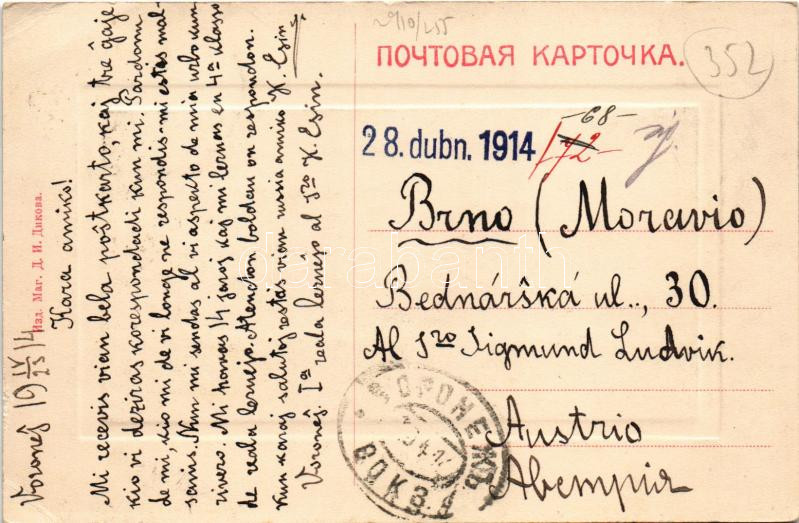 29/10/255
352
ПОЧТОВАЯ КАРТОЧКА.
28. dubn. 1914
-68-
Brno (Moravio)
Bednářská ul., 30.
Al Sro Sigmund Ludvik.
Austrio
Австрія
ВОРОНЕЖЪ
ВОКЗ.
Изд. Маг. Д. И. Дикова.
Voronej 19 IV/25 14
Kara amiko!
Mi recevis vian bela poŝtkarto, kaj tre ĝoje
kio vi deziras korespondadi kun mi. Pardonu
de mi, kio mi de vi longe ne respondis - mi estas mal-
sanis. Nun mi sendas al vi aspekto de mia urbo kun
rivero. Mi havas 14 jaroj kaj mi lernas en 4a klaso
de reala lernejo. Atendon baldaŭ on respondon.
kun karaj salutoj restas vian nova amiko K. Esin
Voronej. Ia reala lernejo al Sro K. Esin.
darabanth